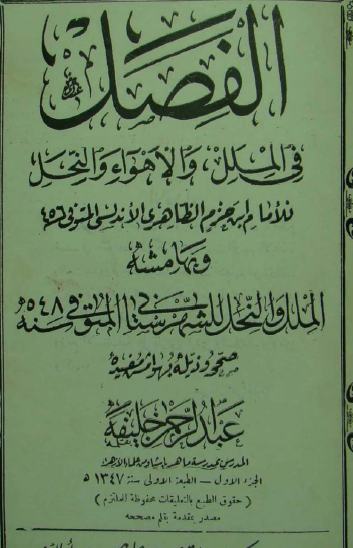 الفصل
في الملل والأهواء والنحل
للإمام ابن حزم الظاهري الأندلسي المتوفى ٤٥٦
وبهامشه
الملل والنحل للشهرستاني المتوفى سنة ٥٤٨
صححه وذيله بهوامش مفيدة
عبد الرحمن خليفة
المدرس بمدرسة ماهر باشا ومن علماء الأزهر
الجزء الاول – الطبعة الاولى سنة ١٣٤٧ ه
( حقوق الطبع بالتعليقات محفوظة للملتزم )
مصدر بمقدمة بقلم مصححه